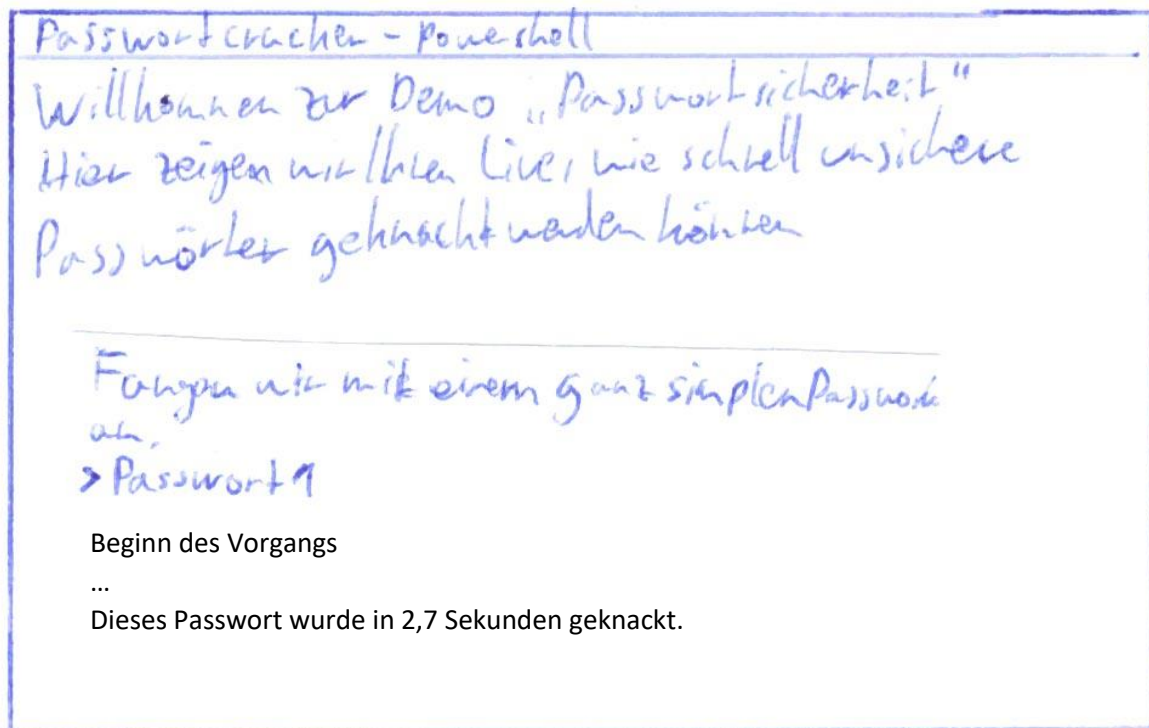 Passwortcracker - Powershell
Willkommen zur Demo „Passwortsicherheit“
Hier zeigen wir Ihnen Live, wie schnell unsichere
Passwörter geknackt werden können
Fangen wir mit einem ganz simplen Passwort
an.
> Passwort1
Beginn des Vorgangs
...
Dieses Passwort wurde in 2,7 Sekunden geknackt.